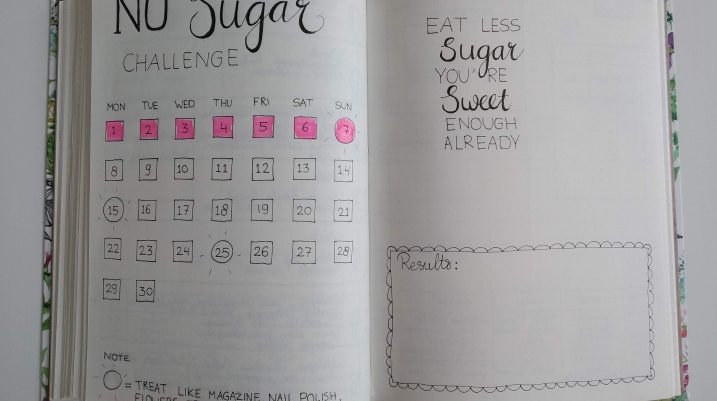 NO Sugar
CHALLENGE
MON TUE WED THU FRI SAT SUN
1 2 3 4 5 6 7
8 9 10 11 12 13 14
15 16 17 18 19 20 21
22 23 24 25 26 27 28
29 30
NOTE
= TREAT LIKE MAGAZINE NAIL POLISH,
EAT LESS
Sugar
YOU'RE
Sweet
ENOUGH
ALREADY
Results: